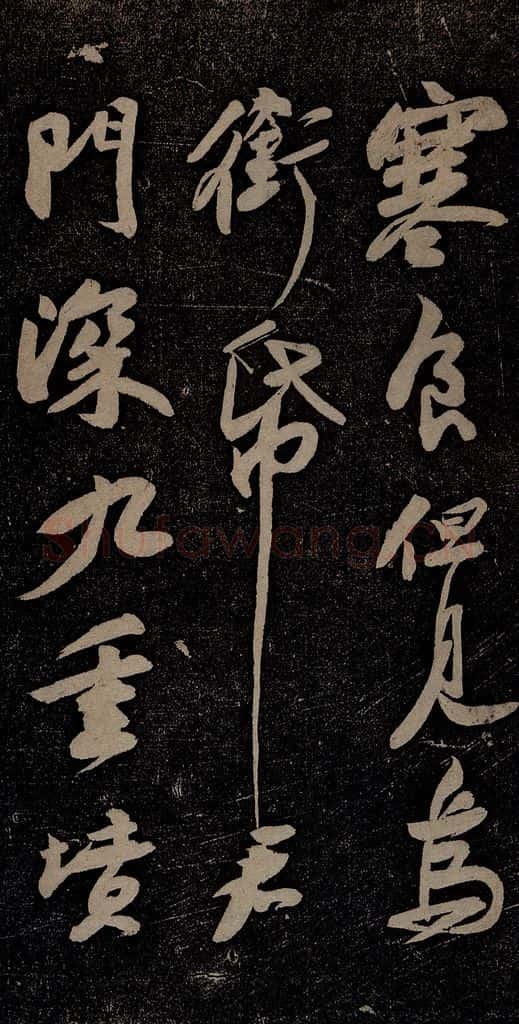 寒食但見烏
銜帋君
門深九重墳
shufawang.cn